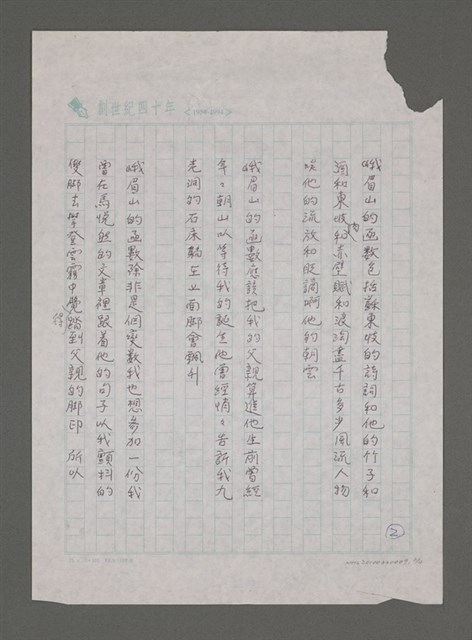 創世紀四十年
<1954-1994>
峨眉山的函數包括蘇東坡的詩詞和他的竹子和
洞和東坡和赤壁賦和浪淘盡千古多少風流人物
唉他的流放和貶謫啊他的朝雲
峨眉山的函數應該把我的父親算進他生前曾經
年年朝山以等待我的誕生他曾經悄悄告訴我九
老洞的石床躺在上面腳會飄升
峨眉山的函數除非是個變數我也想參加一份我
曾在馬悅然的文章裡跟着他的句子以我顫抖的
雙腳去攀登雲霧中覺得踏到父親的腳印 所以
2